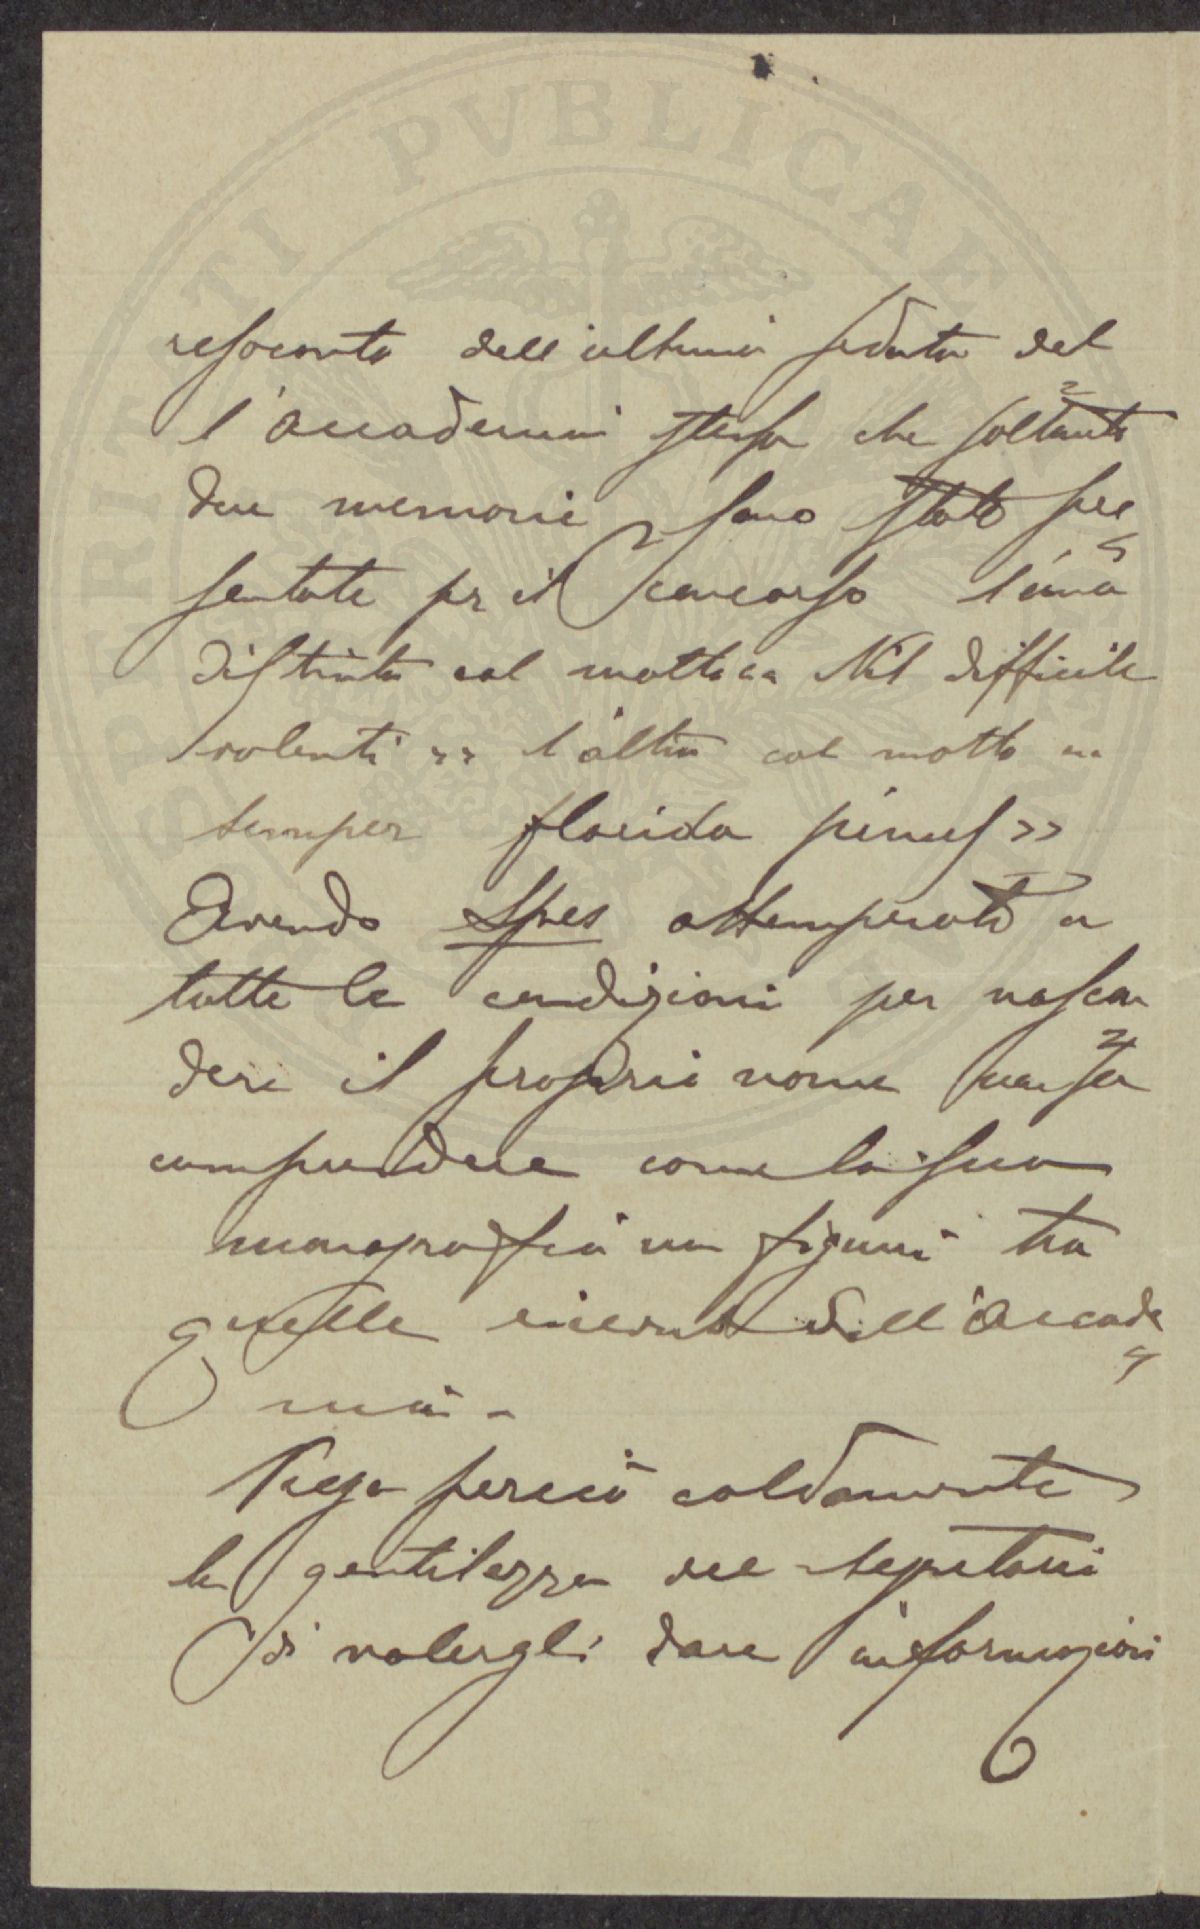 PROSPERITATI PVBLICAE
resoconto dell'ultima seduta del
l'Accademia stessa che soltanto
due memorie sono state pre
sentate per il concorso l'una
distinta col motto «Nil difficile
volenti» l'altra col motto «
semper florida pinus»
Avendo Spes ottemperato a
tutte le condizioni per nascon
dere il proprio nome non sa
comprendere come la sua
monografia non figuri tra
quelle dell'Accade
mia -
Prega perciò caldamente
la gentilezza del segretario
di volergli dare informazioni